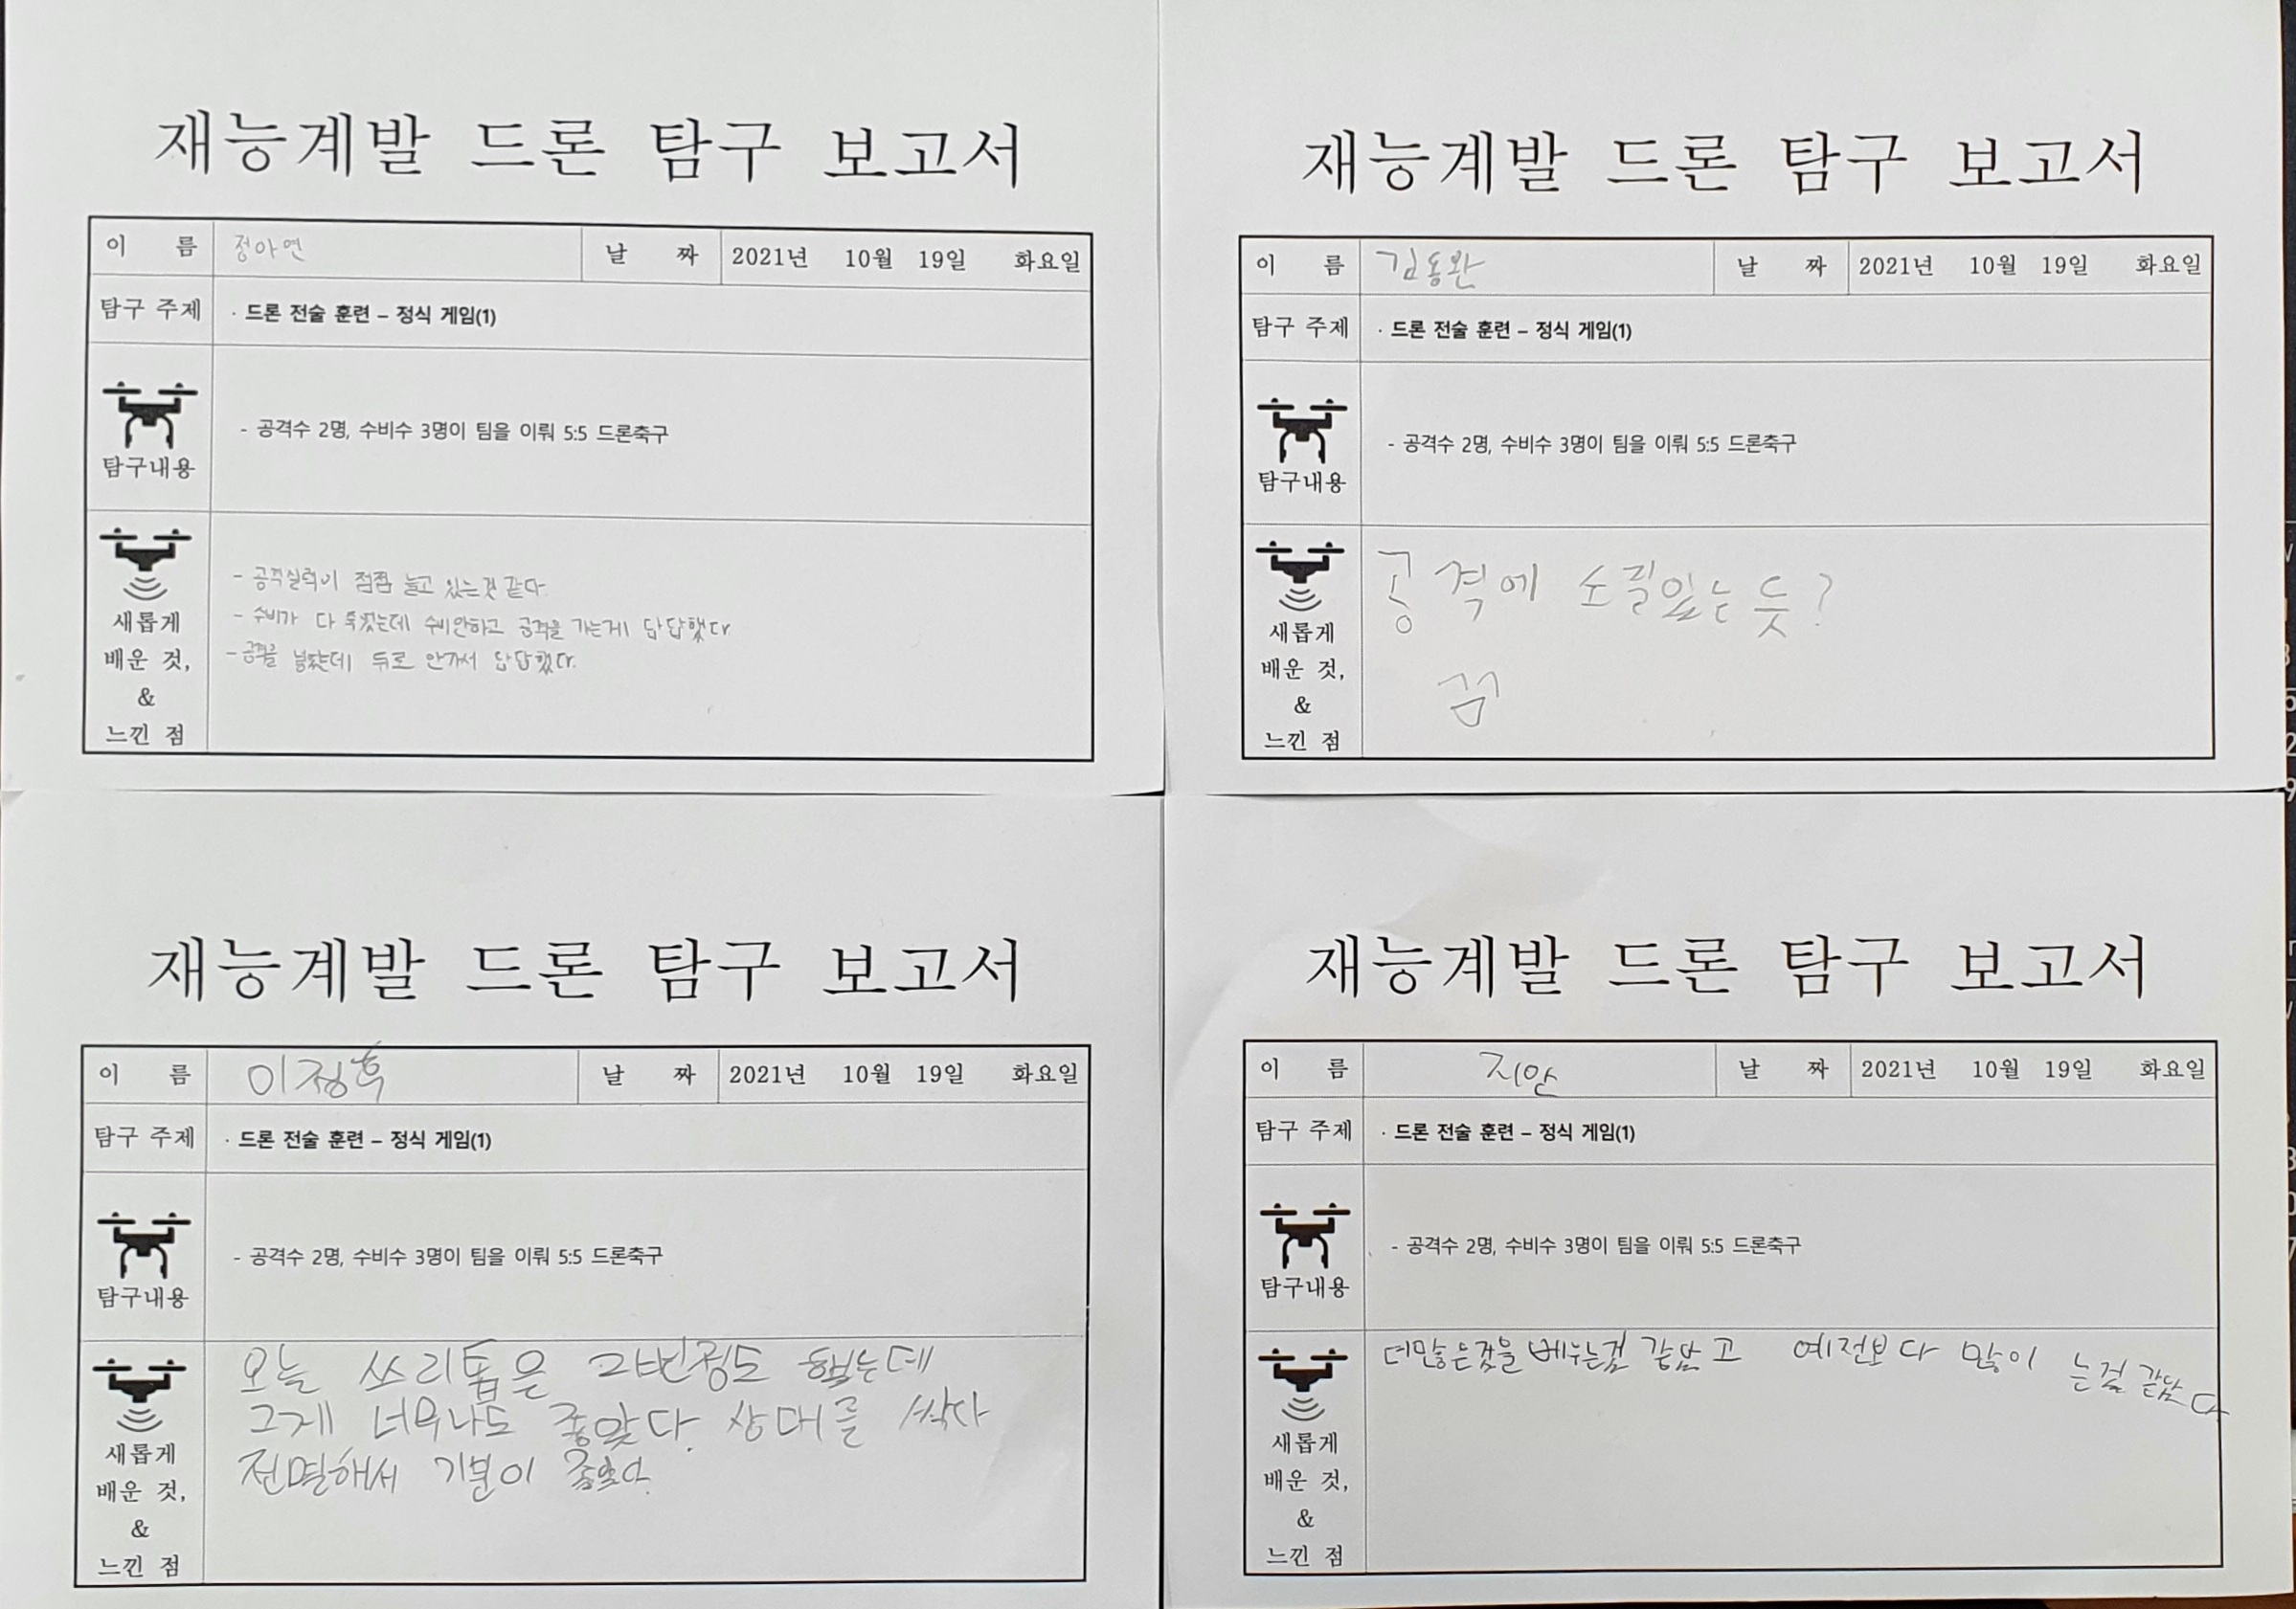 재능계발 드론 탐구 보고서
이 름 정아연 날 짜 2021년 10월 19일 화요일
탐구 주제 · 드론 전술 훈련 – 정식 게임(1)
탐구내용 - 공격수 2명, 수비수 3명이 팀을 이뤄 5:5 드론축구
새롭게
배운 것,
&
느낀 점
- 공격실력이 점점 늘고 있는것 같다.
- 수비가 다 죽었는데 수비안하고 공격을 가는게 답답했다
- 공격을 넣었는데 뒤로 안가서 답답했다.
재능계발 드론 탐구 보고서
이 름 김동완 날 짜 2021년 10월 19일 화요일
탐구 주제 · 드론 전술 훈련 – 정식 게임(1)
탐구내용 - 공격수 2명, 수비수 3명이 팀을 이뤄 5:5 드론축구
새롭게
배운 것,
&
느낀 점
공격에 소질있는 듯?
재능계발 드론 탐구 보고서
이 름 이정훅 날 짜 2021년 10월 19일 화요일
탐구 주제 · 드론 전술 훈련 – 정식 게임(1)
탐구내용 - 공격수 2명, 수비수 3명이 팀을 이뤄 5:5 드론축구
새롭게
배운 것,
&
느낀 점
오늘 쓰리톱은 했는데
그게 너무나도 좋았다. 상대를 싹다
전멸해서 기분이 좋았다.
재능계발 드론 탐구 보고서
이 름 지안 날 짜 2021년 10월 19일 화요일
탐구 주제 · 드론 전술 훈련 – 정식 게임(1)
탐구내용 - 공격수 2명, 수비수 3명이 팀을 이뤄 5:5 드론축구
새롭게
배운 것,
&
느낀 점
더많은것을 베우는것 같았고 예전보다 많이 는것 같았다